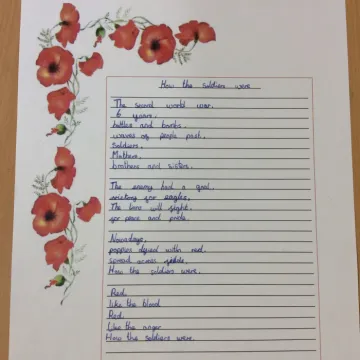 How the soldiers were
The second world war.
6 years.
battles and bombs.
waves of people past.
Soldiers,
Mothers,
brothers and sisters.
The enemy had a goal.
for eagles,
The lions will fight.
for peace and pride.
Nowadays,
poppies dyed with red.
spread across fields.
How the soldiers were.
Red.
like the blood
Red.
Like the anger
How the soldiers were.